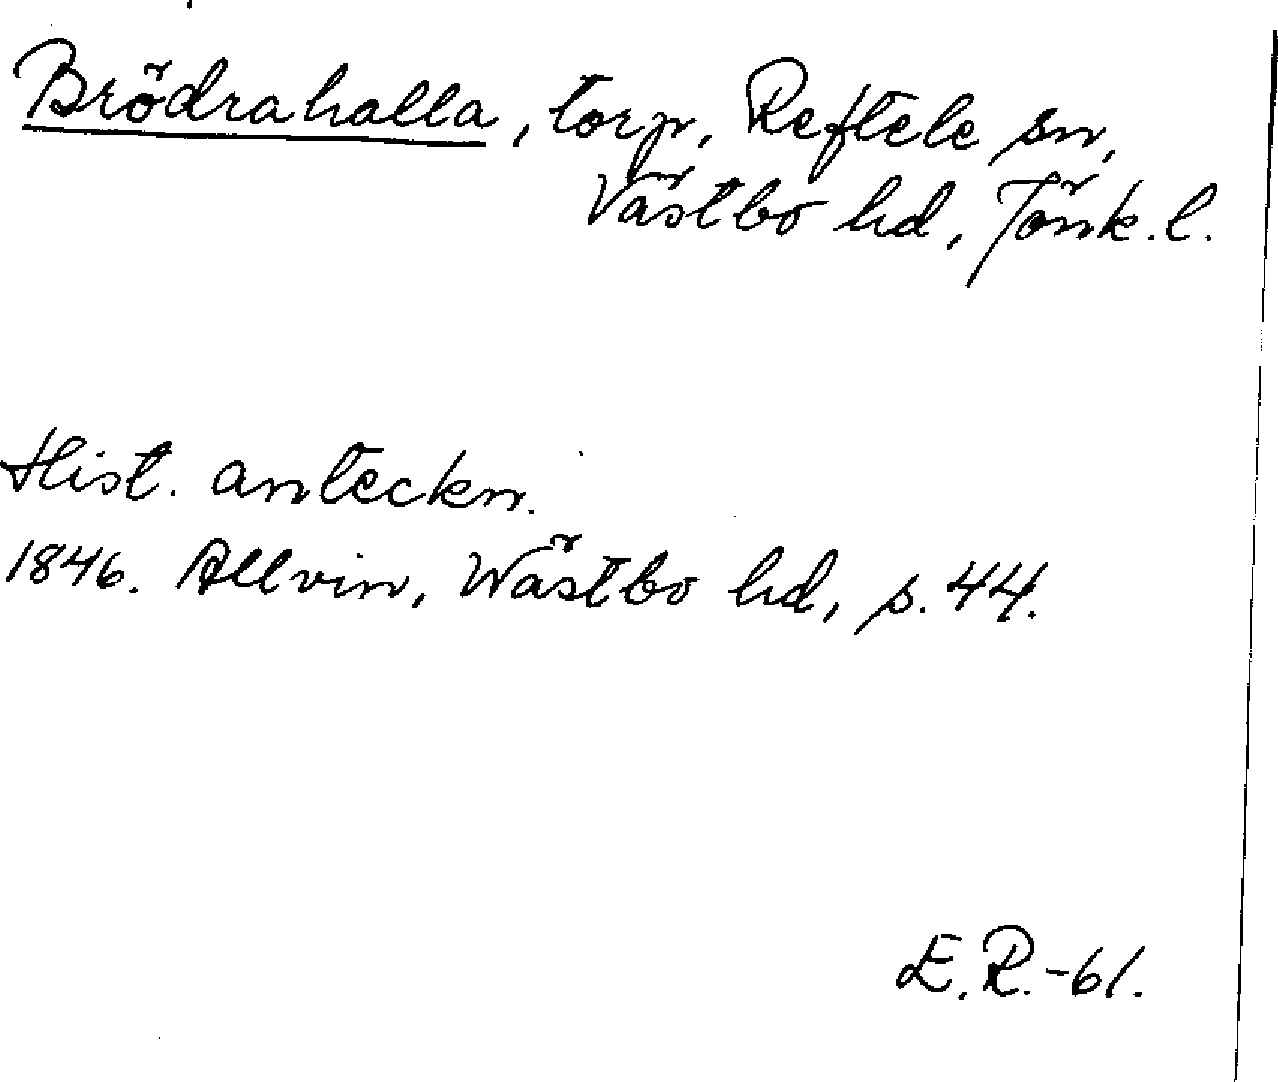 Brödrahalla, torp, Reftele sn,
Västbo hd, Jönk. l.
Hist. anteckn.
1846. Allvin, Wästbo hd, s. 44.
E. R. -61.